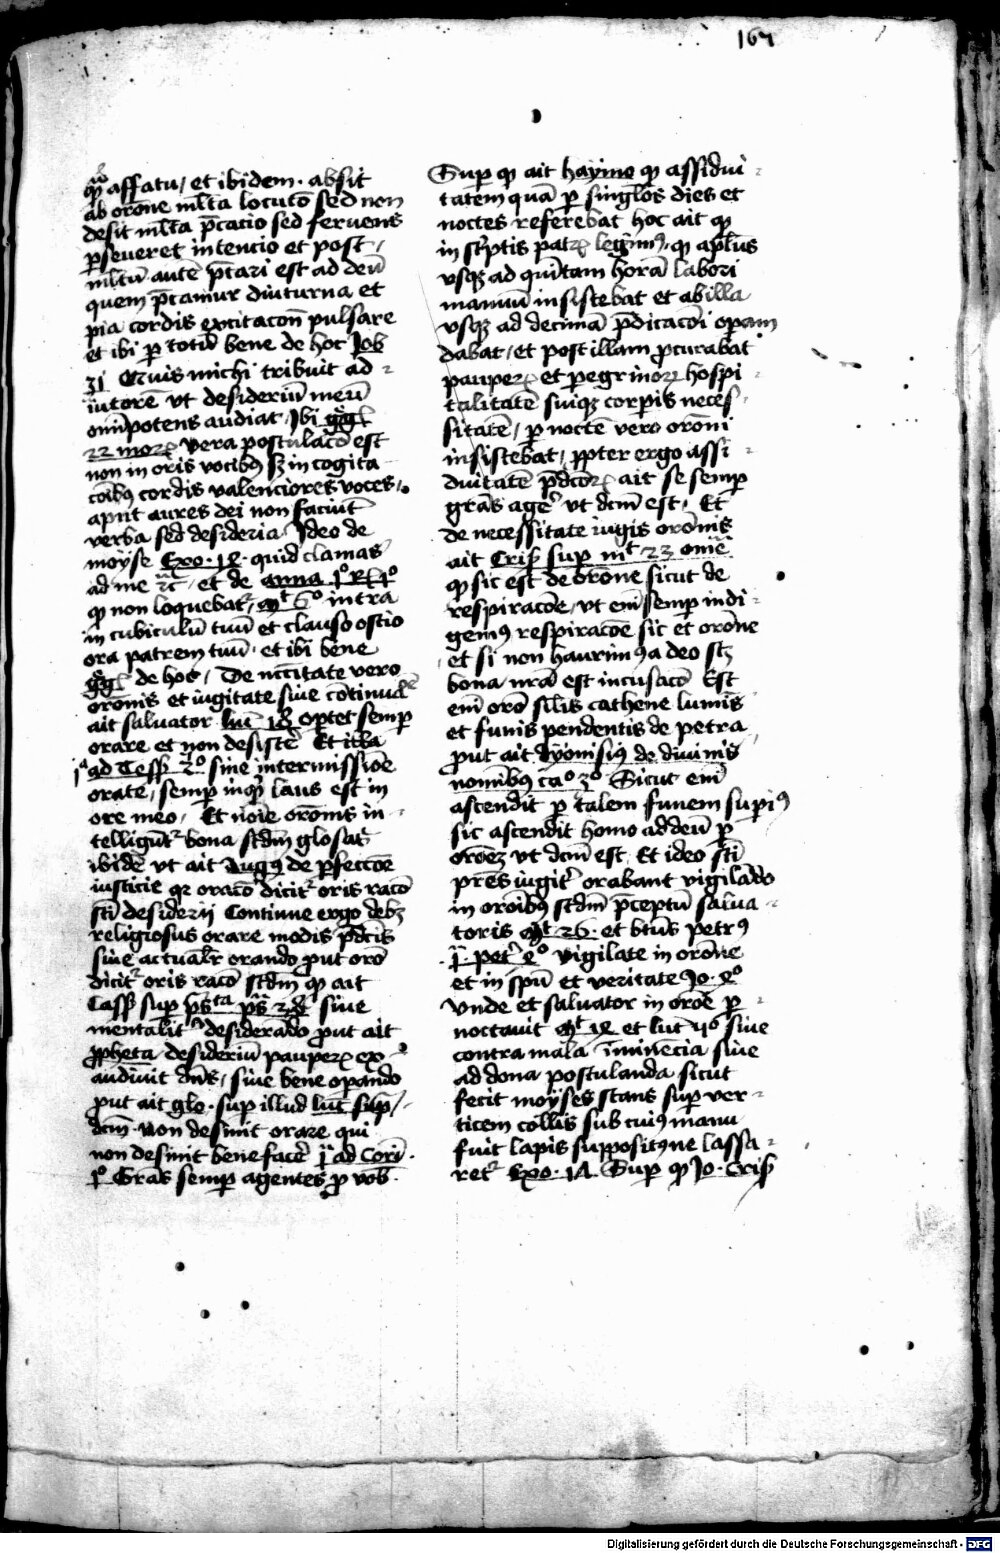 167
affatu / et ibidem · absit
ab orõne ml̃ta locutõ sed non
desit ml̃ta p̃catio sed fervens
ꝑseueret intencio et post
ml̃tũ autẽ p̃cari est ad deũ
quem p̃camur diuturna et
pia cordis excitacõñ pulsare
et ibi ꝑ totũ bene de hoc Job
31 Quis michi tribuit ad
iutorẽ vt desideriũ meũ
om̃ipotens audiat / Jbi gͤgͬ
22 moꝝ vera postulacõ est
non in oris vocibꝯ sꝫ in cogita
cõibꝯ cordis valenciores voces
apud aures dei non faciũt
verba sed desideria / Jdeo de
moyse Exo · 14 · quid clamas
ad me ⁊c̃ / et de anna pͦ R̃ pͦ
ꝙ non loquebat᷑ / mͭ 6ͦ intra
in cubiculũ tuũ et clauso ostio
ora patrem tuũ · et ibi bene
gͤgͬ de hoc / De nc̃citate vero
orõnis et iugitate siue cõtinua
ait saluator luc̃ 18 oꝑtet semꝑ
orare et non desistẽ Et illa
pͣ ad Tess̃ 2ͦ sine intermissiõe
orate / semꝑ inqͥt laus est in
ore meo / Et noĩe orõnis in
telligũt᷑ bona scd̃m glosaʒ
ibidẽ vt ait Augꝯ de ꝑfecc̃õe
iusticie qꝛ oracõ dicit᷑ oris racõ
sc̃i desiderij Continue ergo debꝫ
religiosus orare modis p̃dc̃is
siue actual̃r orando ꝓut orõ
dicit᷑ oris racõ scd̃m ꝙ ait
Cass̃ suꝑ psͭᵃ siue
mentalit᷑ desiderãdo ꝓut ait
ꝓpheta desideriũ pauperꝝ ex
audiuit dñs / siue bene operando
ꝓut ait glo · suꝑ illud luc̃ sup̃ /
dc̃m · Non desinit orare qui
non desinit bene facẽ pͣ ad Cori ·
pͦ Gr̃as semꝑ agentes ꝓ vob̃ ·
Suꝑ ꝙ ait haymo ꝙ assidui
tatem quã ꝑ singl̃os dies et
noctes referebat hoc ait ꝙ
in sc̃ptis patꝝ legimꝯ · ꝙ apl̃us
vsqꝫ ad quĩtam horã labori
manuũ insistebat et ab illa
vsqꝫ ad decimã p̃dicacõi operam
dabat / et post illam ꝓcurabat
pauperꝝ et peregrinoꝝ hospi
talitatẽ suiqꝫ corꝑis neces
sitatẽ / ꝑ noctẽ vero orõni
insistebat / ꝓpter ergo assi
duitatẽ p̃dc̃oꝝ ait se semꝑ
gr̃as agẽ vt dc̃m est · Et
de necessitate iugis orõnis
ait Cris̃ suꝑ mͭ 23 om̃e
ꝙ sic est de orõne sicut de
respiracõe / vt em̃ semꝑ indi
gemꝯ respiracõe sic et orõne
et si non haurimꝯ a deo scꝫ
bona nr̃a est incusacõ Est
em̃ orõ sil̃is cathene lumis
et funis pendentis de petra
ꝓut ait dyonisiꝯ de diuinis
nomĩbꝯ caͦ 3ͦ Sicut em̃
ascendit ꝑ talem funem supiꝯ
sic ascendit homo ad deũ ꝑ
orõeꝫ vt dc̃m est · Et ideo sc̃i
pr̃es iugit᷑ orabant vigilãdo
in orõibꝯ scd̃m p̃ceptũ salua
toris mͭ 26 · et btũs petrꝯ
pͣ · pet᷑ 4ͦ vigilate in orõne
et in sp̃u et veritate Jo · 4ͦ
Vnde et saluator in orõe ꝑ
noctauit mͭ 14 et luc̃ siue
contra mala im̃inẽcia siue
ad dona postulanda sicut
fecit moyses stans suꝑ ver
ticem collis sub cuiꝯ manu
fuit lapis suppositꝯ ne lassa
ret᷑ Exo · 17 · Suꝑ ꝙ Jo · Cris̃
Digitalisierung gefördert durch die Deutsche Forschungsgemeinschaft - DFG